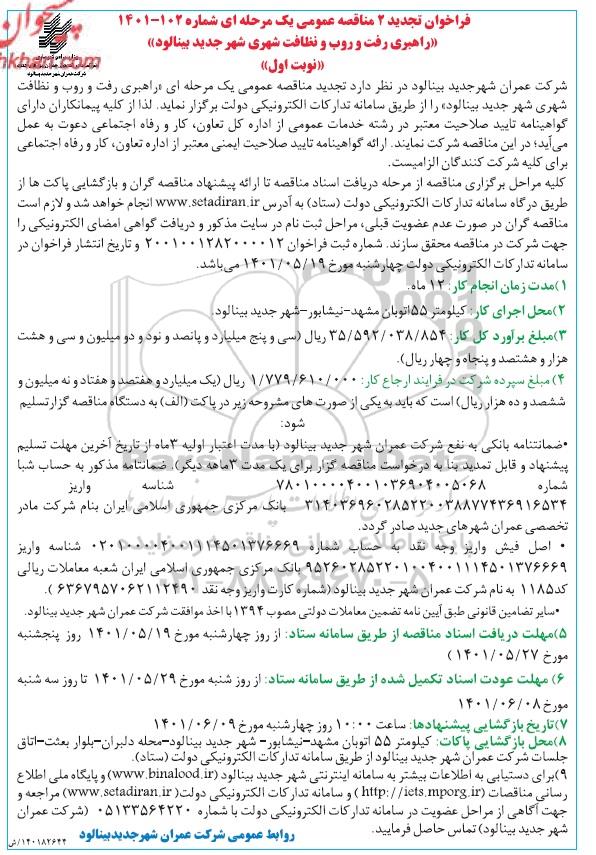 فراخوان تجدید ۲ مناقصه عمومی یک مرحله ای شماره ۱۰۲-۱۴۰۱
«راهبری رفت و روب و نظافت شهری شهر جدید بینالود»
«نوبت اول»
شرکت عمران شهرجدید بینالود در نظر دارد تجدید مناقصه عمومی یک مرحله ای «راهبری رفت و روب و نظافت
شهری شهر جدید بینالود» را از طریق سامانه تدارکات الکترونیکی دولت برگزار نماید. لذا از کلیه پیمانکاران دارای
گواهینامه تایید صلاحیت معتبر در رشته خدمات عمومی از اداره کل تعاون، کار و رفاه اجتماعی دعوت به عمل
می‌آید؛ در این مناقصه شرکت نمایند. ارائه گواهینامه تایید صلاحیت ایمنی معتبر از اداره تعاون، کار و رفاه اجتماعی
برای کلیه شرکت کنندگان الزامیست.
کلیه مراحل برگزاری مناقصه از مرحله دریافت اسناد مناقصه تا ارائه پیشنهاد مناقصه گران و بازگشایی پاکت ها از
طریق درگاه سامانه تدارکات الکترونیکی دولت (ستاد) به آدرس www.setadiran.ir انجام خواهد شد و لازم است
مناقصه گران در صورت عدم عضویت قبلی، مراحل ثبت نام در سایت مذکور و دریافت گواهی امضای الکترونیکی را
جهت شرکت در مناقصه محقق سازند. شماره ثبت فراخوان ۲۰۰۱۰۰۱۲۸۲۰۰۰۰۱۲ و تاریخ انتشار فراخوان در
سامانه تدارکات الکترونیکی دولت چهارشنبه مورخ ۱۴۰۱/۰۵/۱۹ می‌باشد.
۱)مدت زمان انجام کار: ۱۲ ماه.
۲)محل اجرای کار: کیلومتر ۵۵اتوبان مشهد-نیشابور-شهر جدید بینالود.
۳)مبلغ برآورد کل کار: ۳۵/۵۹۲/۰۳۸/۸۵۴ ریال (سی و پنج میلیارد و پانصد و نود و دو میلیون و سی و هشت
هزار و هشتصد و پنجاه و چهار ریال).
۴) مبلغ سپرده شرکت در فرایند ارجاع کار: ۱/۷۷۹/۶۱۰/۰۰۰ ریال (یک میلیارد و هفتصد و هفتاد و نه میلیون و
ششصد و ده هزار ریال) است که باید به یکی از صورت های مشروحه زیر در پاکت (الف) به دستگاه مناقصه گزار تسلیم
شود:
•ضمانتنامه بانکی به نفع شرکت عمران شهر جدید بینالود (با مدت اعتبار اولیه ۳ماه از تاریخ آخرین مهلت تسلیم
پیشنهاد و قابل تمدید بنا به درخواست مناقصه گزار برای یک مدت ۳ماهه دیگر). ضمانتنامه مذکور به حساب شبا
شماره ۷۸۰۱۰۰۰۰۴۰۰۱۰۳۶۹۰۴۰۰۵۰۶۸ شناسه واریز
۳۱۴۰۳۶۹۶۰۲۸۵۲۲۰۰۳۸۸۷۷۴۳۶۹۱۶۵۳۴ بانک مرکزی جمهوری اسلامی ایران بنام شرکت مادر
تخصصی عمران شهرهای جدید صادر گردد.
• اصل فیش واریز وجه نقد به حساب شماره ۰۲۰۱۰۰۰۰۴۰۰۱۱۱۴۵۰۱۳۷۶۶۶۹ شناسه واریز
۹۵۲۶۰۲۸۵۲۲۰۱۰۰۴۰۰۱۱۱۴۵۰۱۳۷۶۶۶۹ بانک مرکزی جمهوری اسلامی ایران شعبه معاملات ریالی
کد۱۱۸۵ به نام شرکت عمران شهر جدید بینالود (شماره کارت واریز وجه نقد ۶۳۶۷۹۵۷۰۶۲۱۱۲۴۹۰ ).
•سایر تضامین قانونی طبق آیین نامه تضمین معاملات دولتی مصوب ۱۳۹۴با اخذ موافقت شرکت عمران شهر جدید بینالود.
۵)مهلت دریافت اسناد مناقصه از طریق سامانه ستاد: از روز چهارشنبه مورخ ۱۴۰۱/۰۵/۱۹ روز پنجشنبه
مورخ ۱۴۰۱/۰۵/۲۷ )
۶) مهلت عودت اسناد تکمیل شده از طریق سامانه ستاد: از روز شنبه مورخ ۱۴۰۱/۰۵/۲۹ تا روز سه شنبه
مورخ ۱۴۰۱/۰۶/۰۸
۷)تاریخ بازگشایی پیشنهادها: ساعت ۱۰:۰۰ روز چهارشنبه مورخ ۱۴۰۱/۰۶/۰۹
۸)محل بازگشایی پاکات: کیلومتر ۵۵ اتوبان مشهد-نیشابور- شهر جدید بینالود-محله دلبران-بلوار بعثت-اتاق
جلسات شرکت عمران شهر جدید بینالود از طریق سامانه تدارکات الکترونیکی دولت (ستاد).
۹)برای دستیابی به اطلاعات بیشتر به سامانه اینترنتی شهر جدید بینالود (www.binalood.ir) و پایگاه ملی اطلاع
رسانی مناقصات (http://iets.mporg.ir ) و سامانه تدارکات الکترونیکی دولت( www.setadiran.ir) مراجعه و
جهت آگاهی از مراحل عضویت در سامانه تدارکات الکترونیکی دولت با شماره ۰۵۱۳۳۵۶۴۲۲۰ (شرکت عمران
شهر جدید بینالود) تماس حاصل فرمایید.
روابط عمومی شرکت عمران شهرجدیدبینالود
۱۴۰۱۸۲۶۴۴/ش